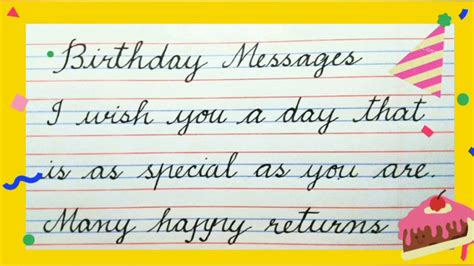 Birthday Messages
I wish you a day that
is as special as you are.
Many happy returns